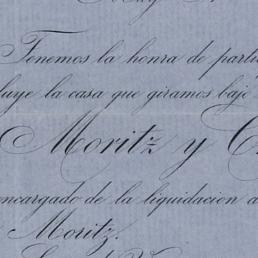 Tenemos la honra de parti
luye la casa que giramos bajo
Moritz y C
encargado de la liquidacion a
Moritz.